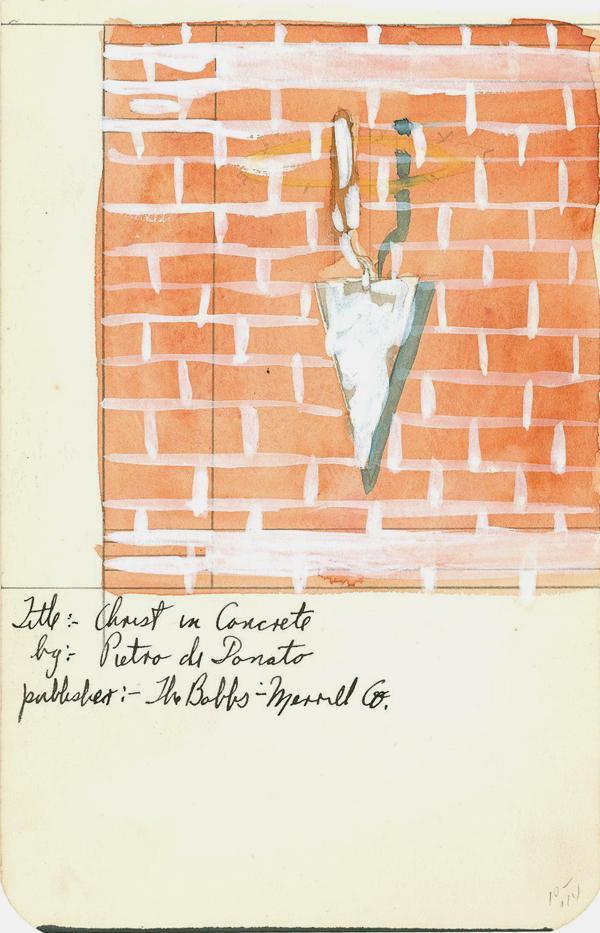 Title:- Christ in Concrete
by:- Pietro di Donato
publisher:- The Bobbs-Merrill Co.